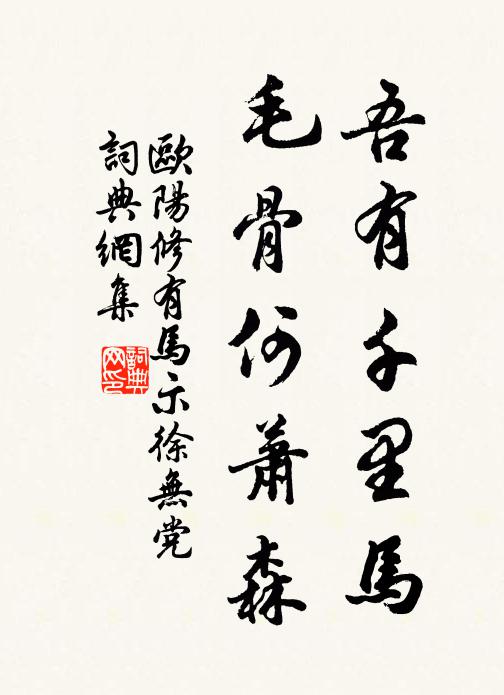 吾有千里馬
毛骨何蕭森
歐陽修有馬示徐無党
詞典網集
詞典网印